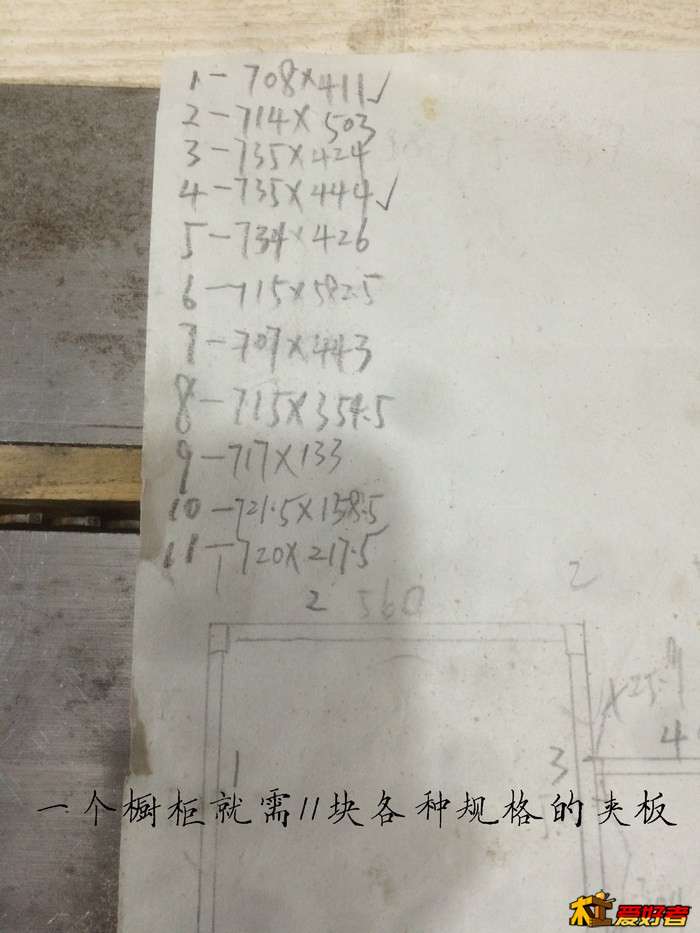 1-708×411✓
2-714×503
3-735×424
4-735×444✓
5-734×426
6-715×582.5
7-707×443
8-715×354.5
9-717×133
10-721.5×158.5
11-720×217.5
2 560 2
1 3 4
一个橱柜就需11块各种规格的夹板
木工爱好者